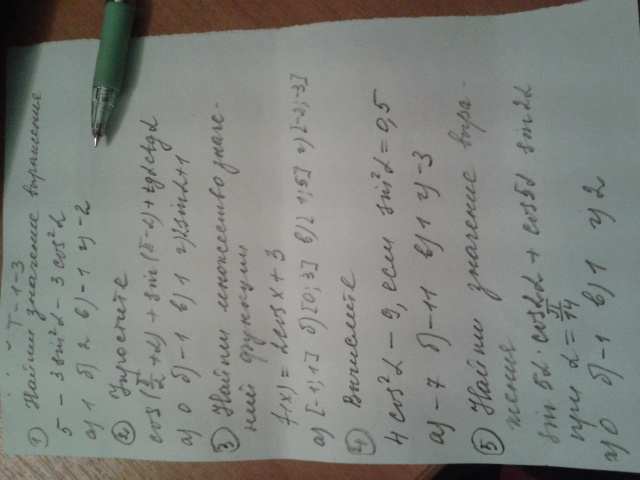 Т-1-3
① Найти значение выражения
5 - 3 sin²α - 3 cos²α
а) 1 б) 2 в) -1 г) -2
② Упростите
cos(π/2 + α) + sin(π - α) + tgα ctgα
а) 0 б) -1 в) 1 г) 2sinα+1
③ Найти множество значе-
ний функции
f(x) = 2cos x + 3
а) [-1; 1] б) [0; 3] в) [1; 5] г) [-2; -3]
④ Вычислите
4 cos²α - 9, если sin²α = 0,5
а) -7 б) -11 в) 1 г) -3
⑤ Найти значение выра-
жения
sin 5α · cos 2α + cos 5α sin 2α
при α = π/14
а) 0 б) -1 в) 1 г) 2